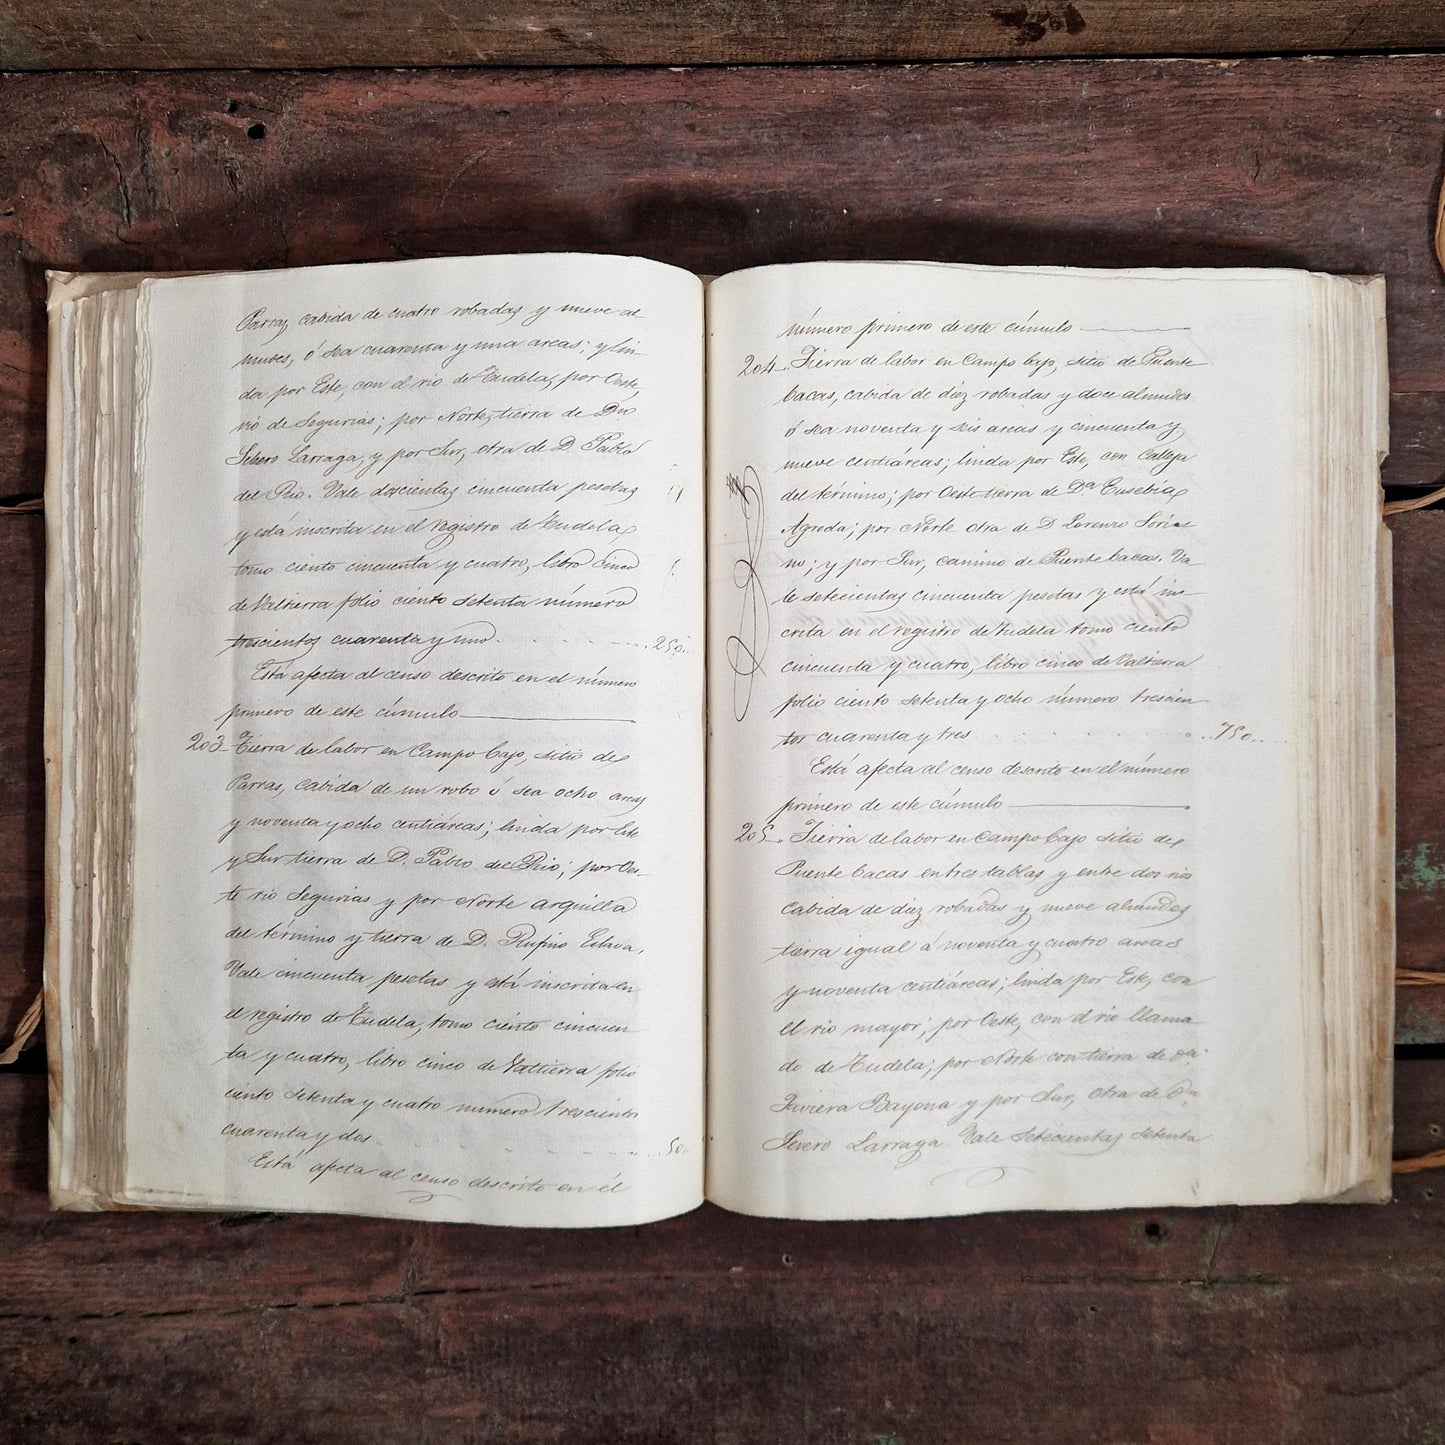 Parras, cabida de cuatro robadas y nueve al-
mudes, ó sea cuarenta y una areas; y lin-
da por Este, con el rio de Tudela, por Oeste,
rio de Segurias; por Norte, tierra de Dn
Severo Larraga, y por Sur, otra de D. Pablo
del Rio. Vale doscientas cincuenta pesetas
y está inscrita en el registro de Tudela,
tomo ciento cincuenta y cuatro, libro cinco
de Valtierra folio ciento setenta número
trescientos cuarenta y uno. 250
Está afecta al censo descrito en el número
primero de este cúmulo
203 Tierra de labor en Campo bajo, sitio de
Parras, cabida de un robo ó sea ocho areas
y noventa y ocho centiáreas; linda por Este
y Sur tierra de D. Pablo del Rio; por Oes-
te rio Segurias y por Norte arquilla
del término y tierra de D. Rufino Eslava,
Vale cincuenta pesetas y está inscrita en
el registro de Tudela, tomo ciento cincuen
ta y cuatro, libro cinco de Valtierra folio
ciento setenta y cuatro numero trescientos
cuarenta y dos 50
Está afecta al censo descrito en él
número primero de este cúmulo
204 Tierra de labor en Campo bajo, sitio de Puente
bacas, cabida de diez robadas y doce almudes
ó sea noventa y seis areas y cincuenta y
nueve centiáreas; linda por Este, con calleja
del término; por Oeste tierra de Dª Eusebia
Agreda; por Norte otra de D Lorenzo Soria-
no; y por Sur, camino de Puente bacas. Va-
le setecientas cincuenta pesetas y está ins-
crita en el registro de Tudela tomo ciento
cincuenta y cuatro, libro cinco de Valtierra
folio ciento setenta y ocho número trescien
tos cuarenta y tres 750
Está afecta al censo descrito en el número
primero de este cúmulo
205 Tierra de labor en Campo bajo sitio de
Puente bacas en tres tablas y entre dos rios
cabida de diez robadas y nueve almudes
tierra igual á noventa y cuatro areas
y noventa centiáreas; linda por Este, con
el rio mayor; por Oeste, con el rio llama-
do de Tudela; por Norte con tierra de Dª
Javiera Bayona y por Sur, otra de Dn
Severo Larraga. Vale setecientas setenta